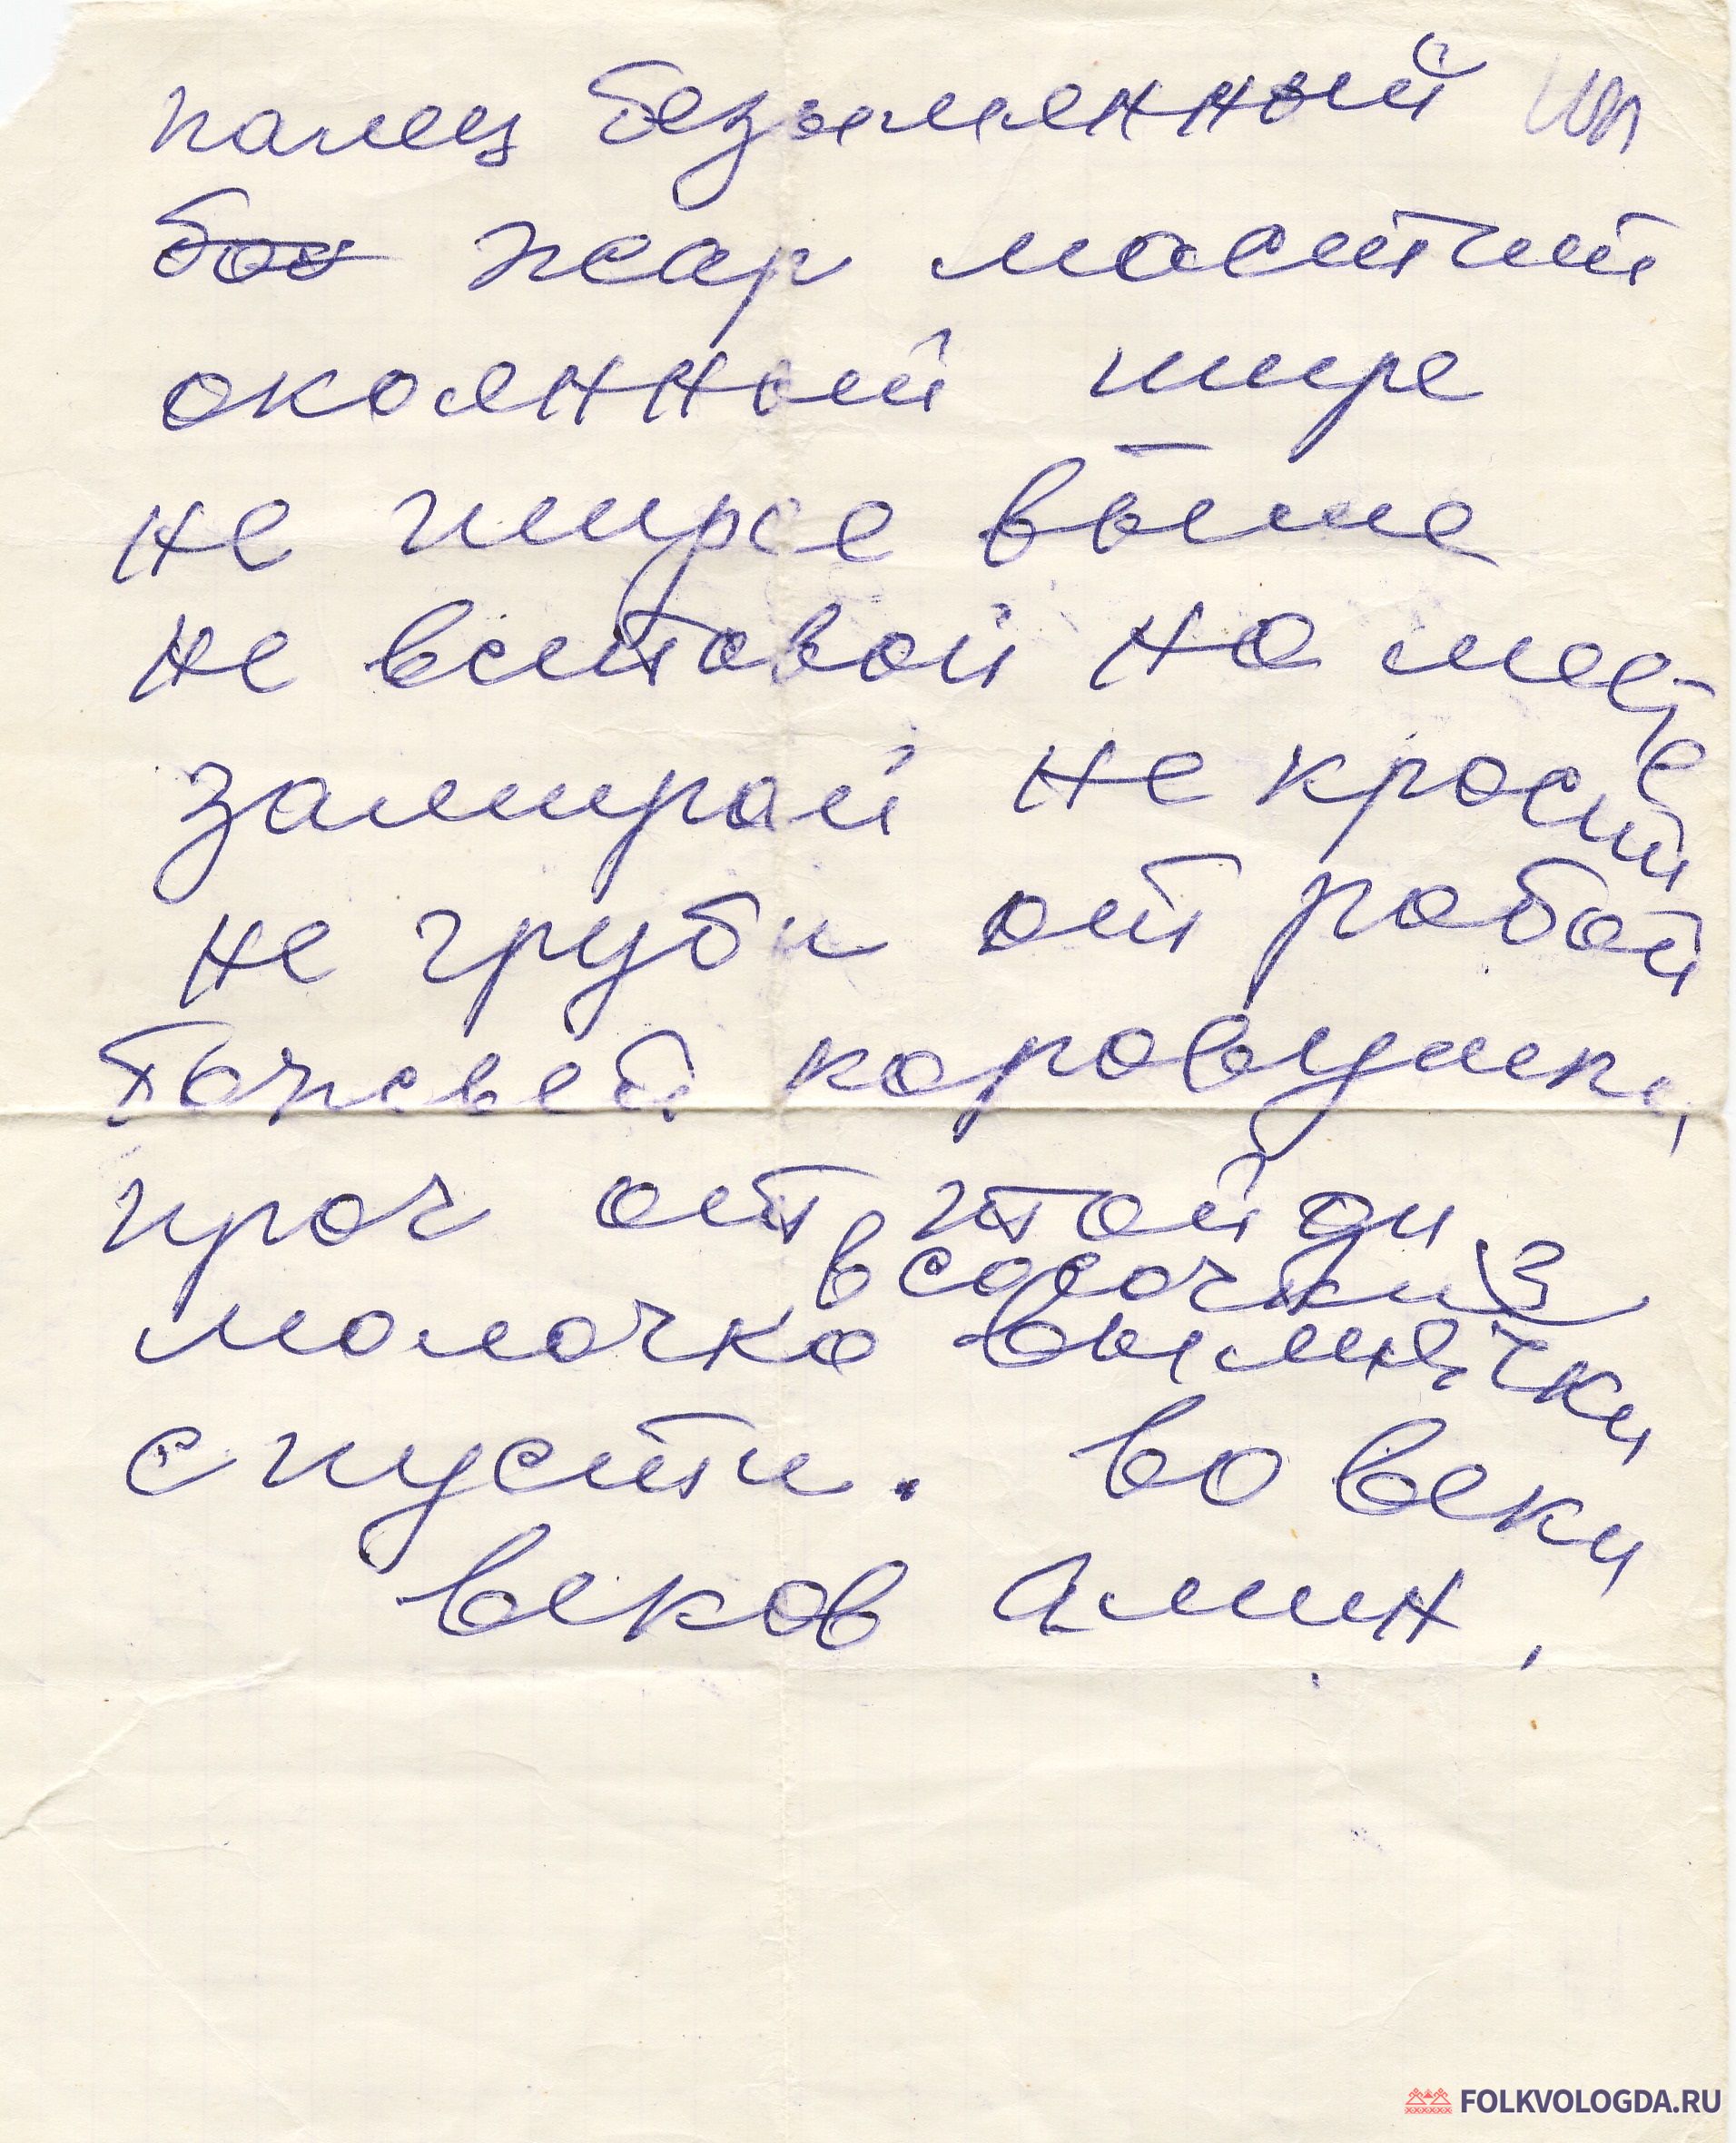 палец безымянный
бок жар мастит
окоянный шире
не ширее выше
не вставой на месте
замирай не красти
не груби от рабой
божьей коровушки,
проч от птойди
в сосочки з
молочко вымички
спусти. во веки
веков Амин,
FOLKVOLOGDA.RU